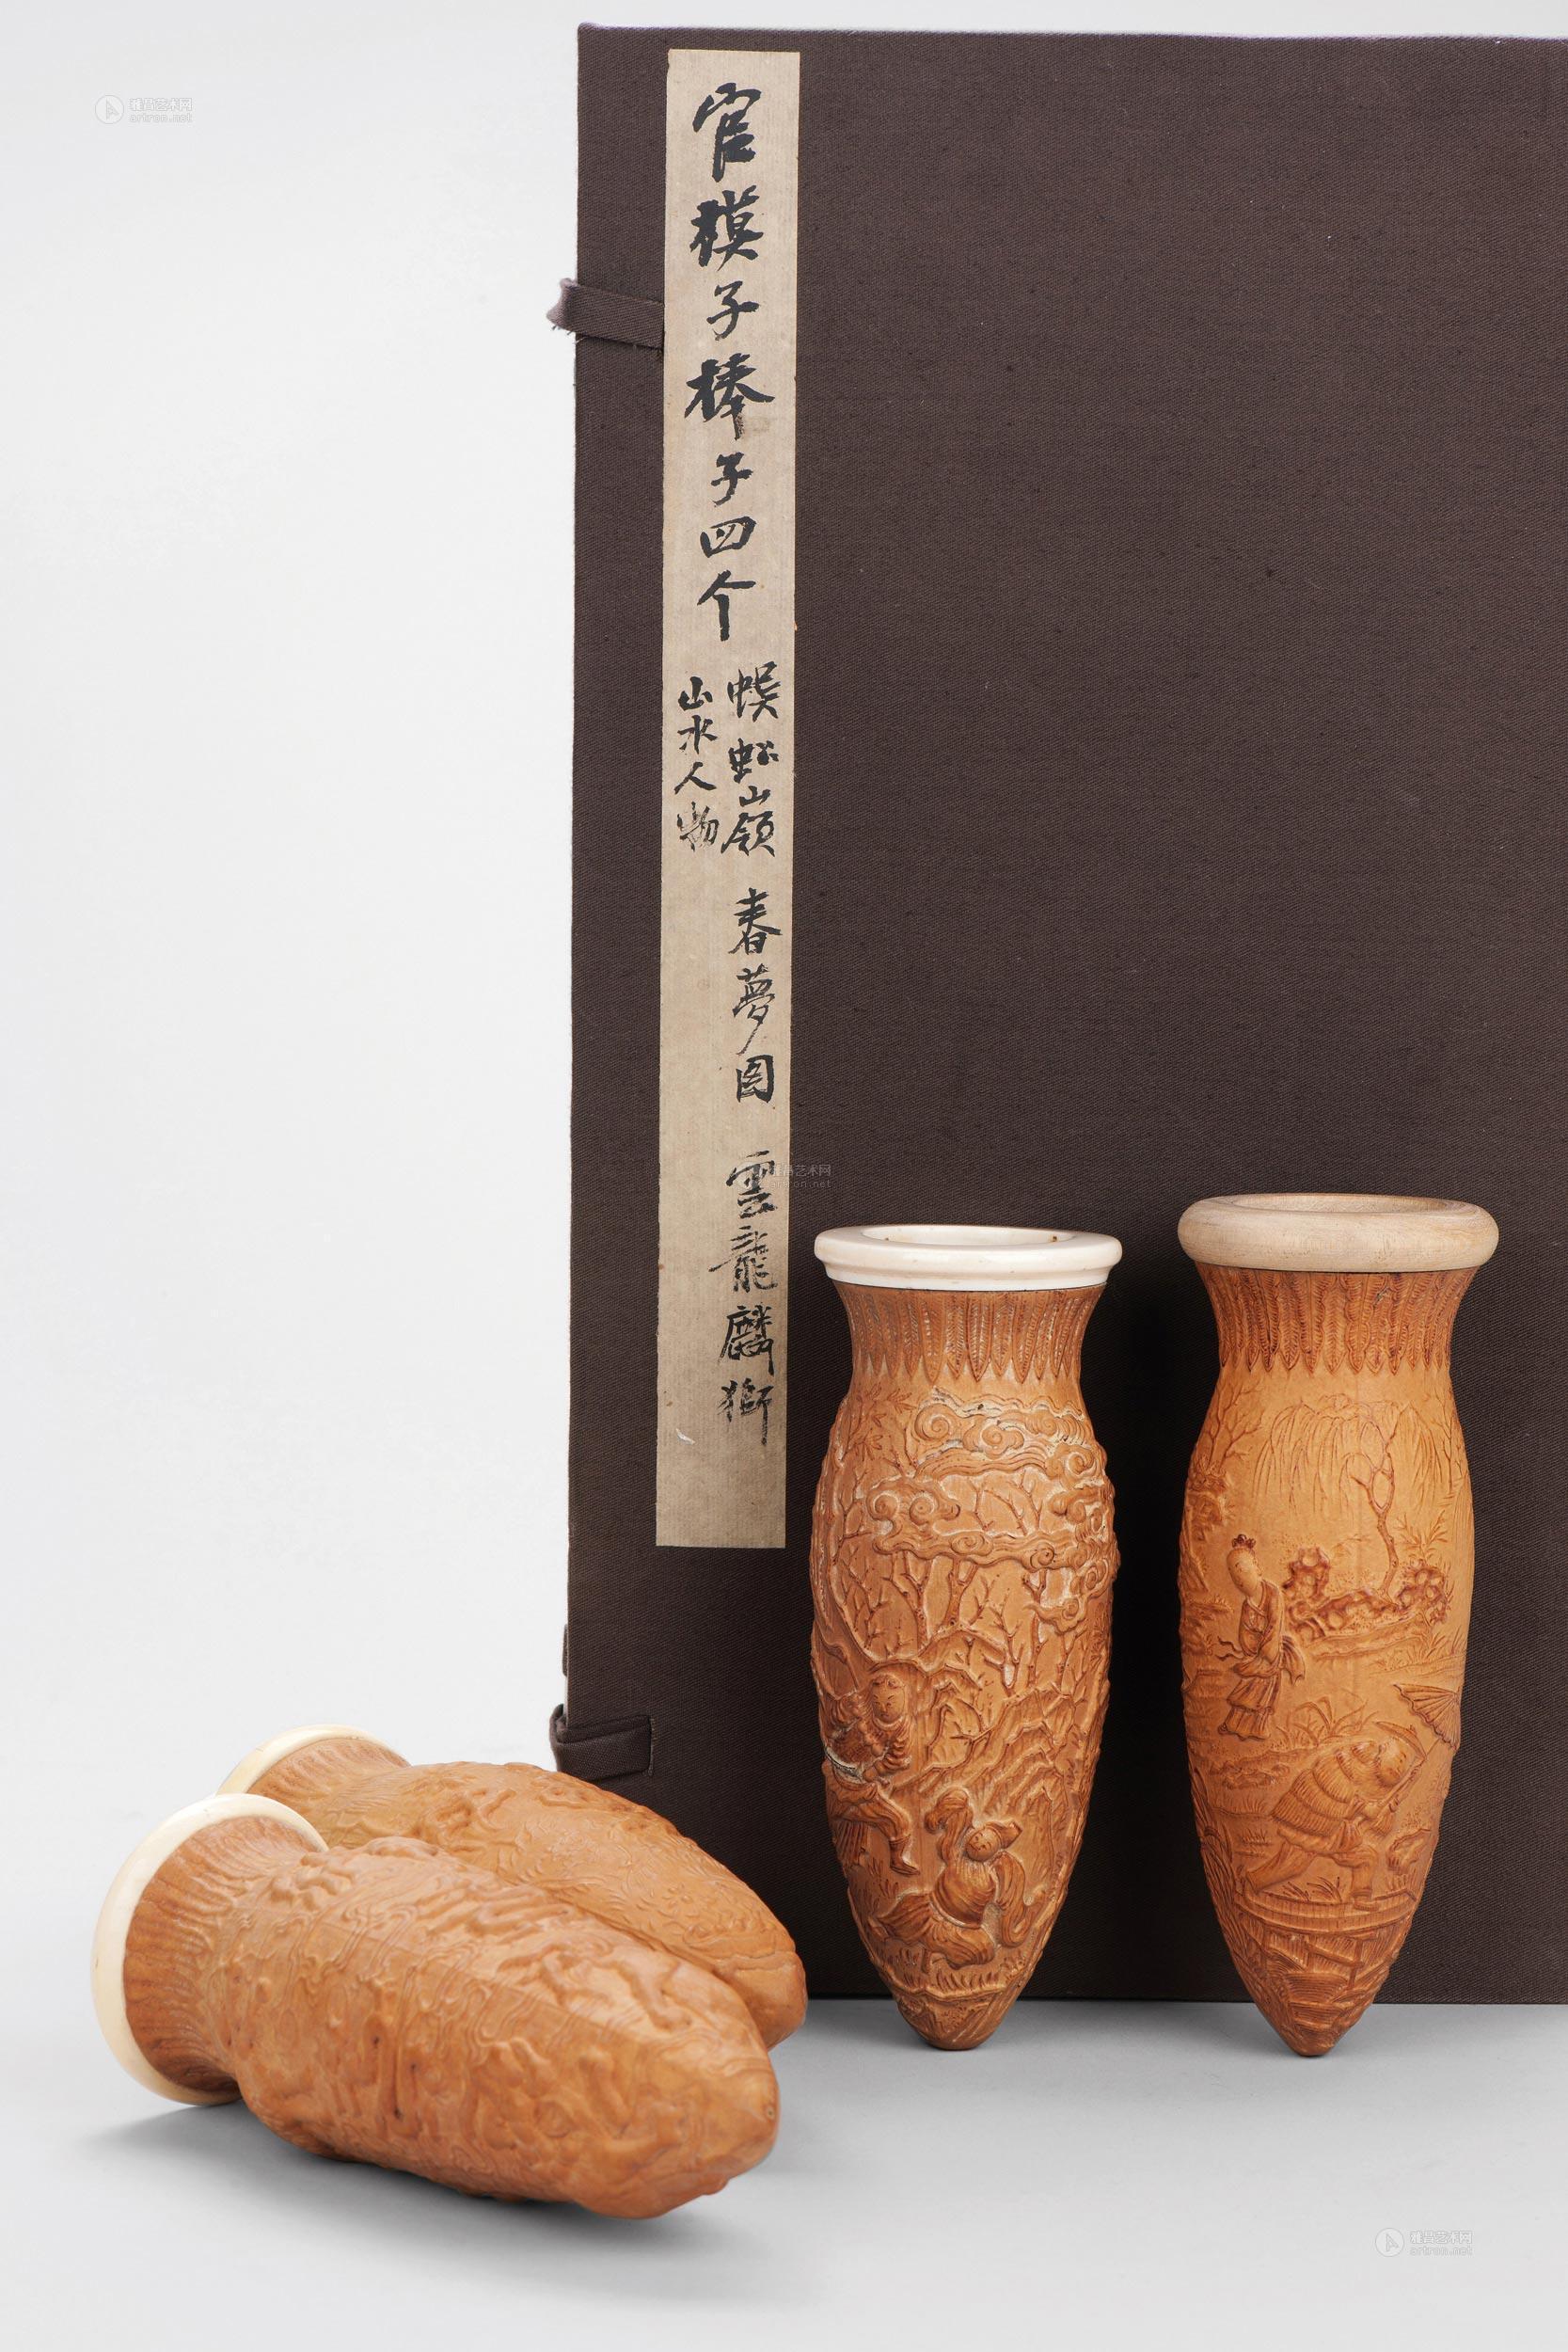 官模子棒子四个
蜈蚣嶺
山水人物
春夢图
雲龍麟獅
雅昌艺术网
artron.net
雅昌艺术网
artron.net
雅昌艺术网
artron.net